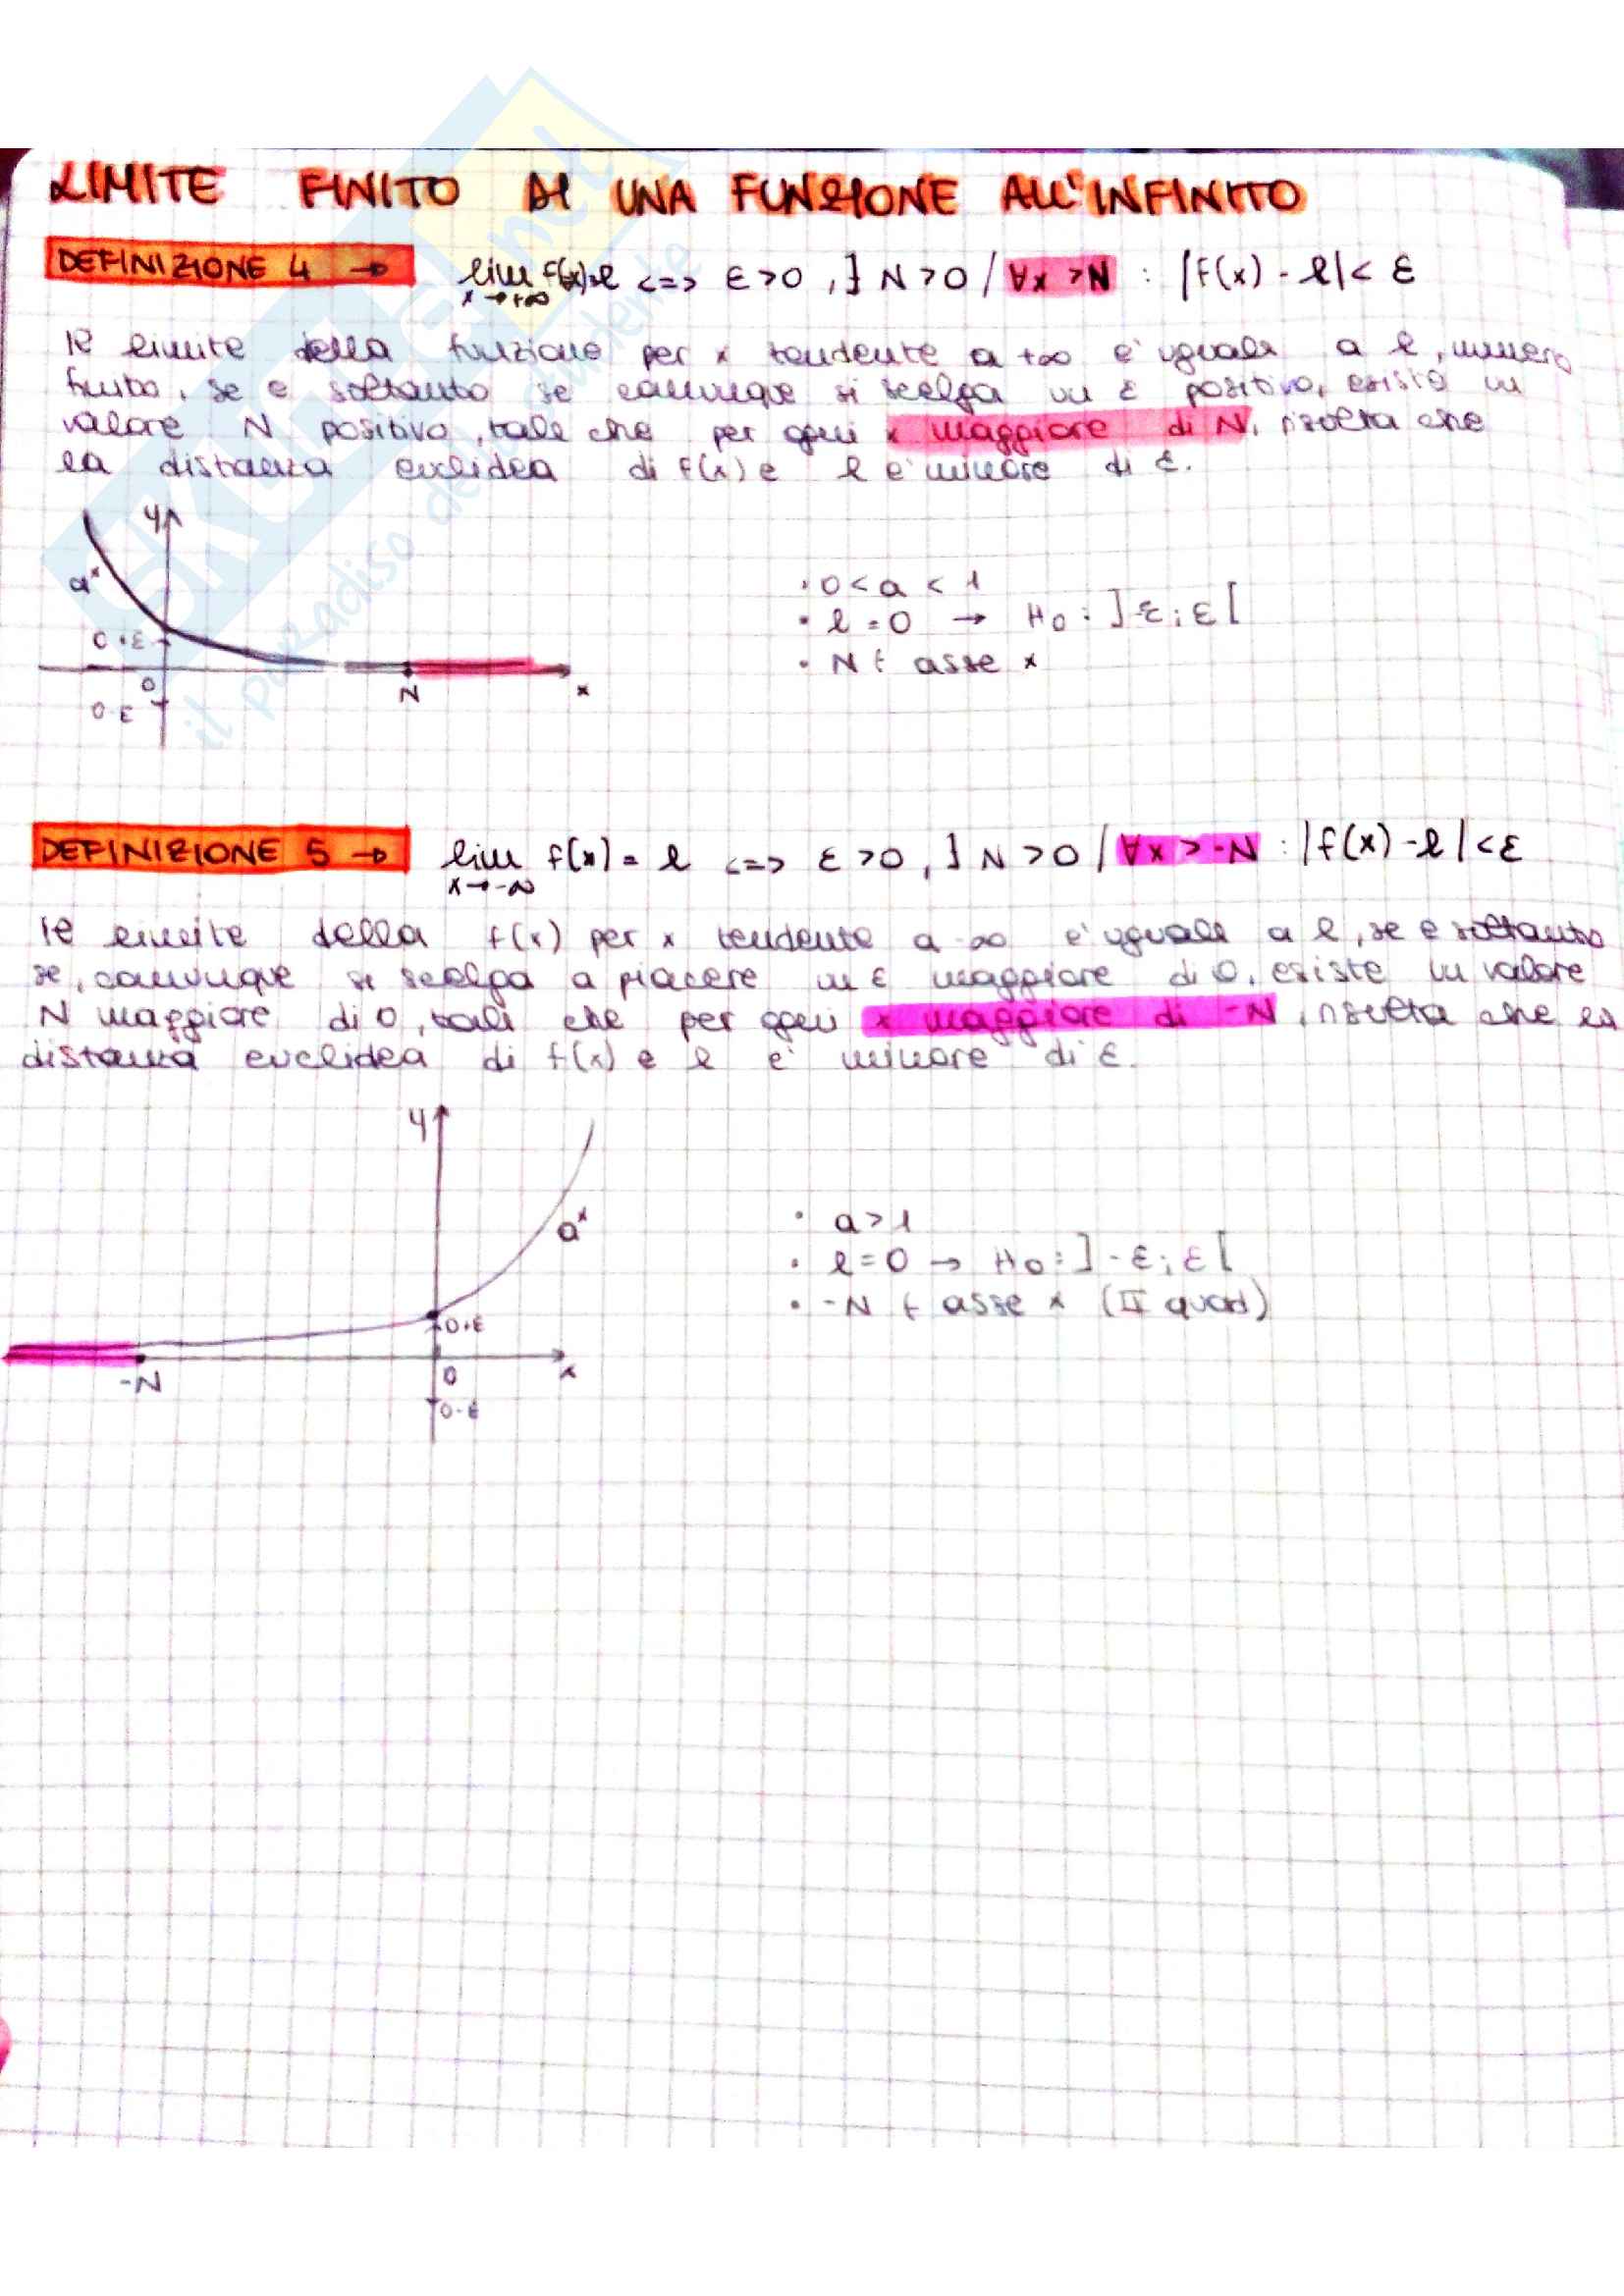 LIMITE FINITO DI UNA FUNZIONE ALL'INFINITO
DEFINIZIONE 4 → lim f(x)=l <=> ε>0, ∃ N>0 / ∀x >N : |f(x) - l|< ε
x→+∞
Il limite della funzione per x tendente a +∞ e' uguale a l, numero
finito, se e soltanto se comunque si scelga un ε positivo, esiste un
valore N positivo, tale che per ogni x maggiore di N, risulta che
la distanza euclidea di f(x) e l e' minore di ε.
y
aˣ
0+ε
0
0-ε
N
x
• 0 < a < 1
• l = 0 → H₀ : ]-ε; ε[
• N ∈ asse x
DEFINIZIONE 5 → lim f(x) = l <=> ε>0, ∃ N>0 / ∀x > -N : |f(x) - l|<ε
x→-∞
Il limite della f(x) per x tendente a -∞ e' uguale a l, se e soltanto
se, comunque si scelga a piacere un ε maggiore di 0, esiste un valore
N maggiore di 0, tale che per ogni x maggiore di -N, risulta che la
distanza euclidea di f(x) e l e' minore di ε.
y
aˣ
0+ε
-N
0
x
0-ε
• a > 1
• l = 0 → H₀ : ]-ε; ε[
• -N ∈ asse x (II quad)
SKUOLA.net
il paradiso dello studente